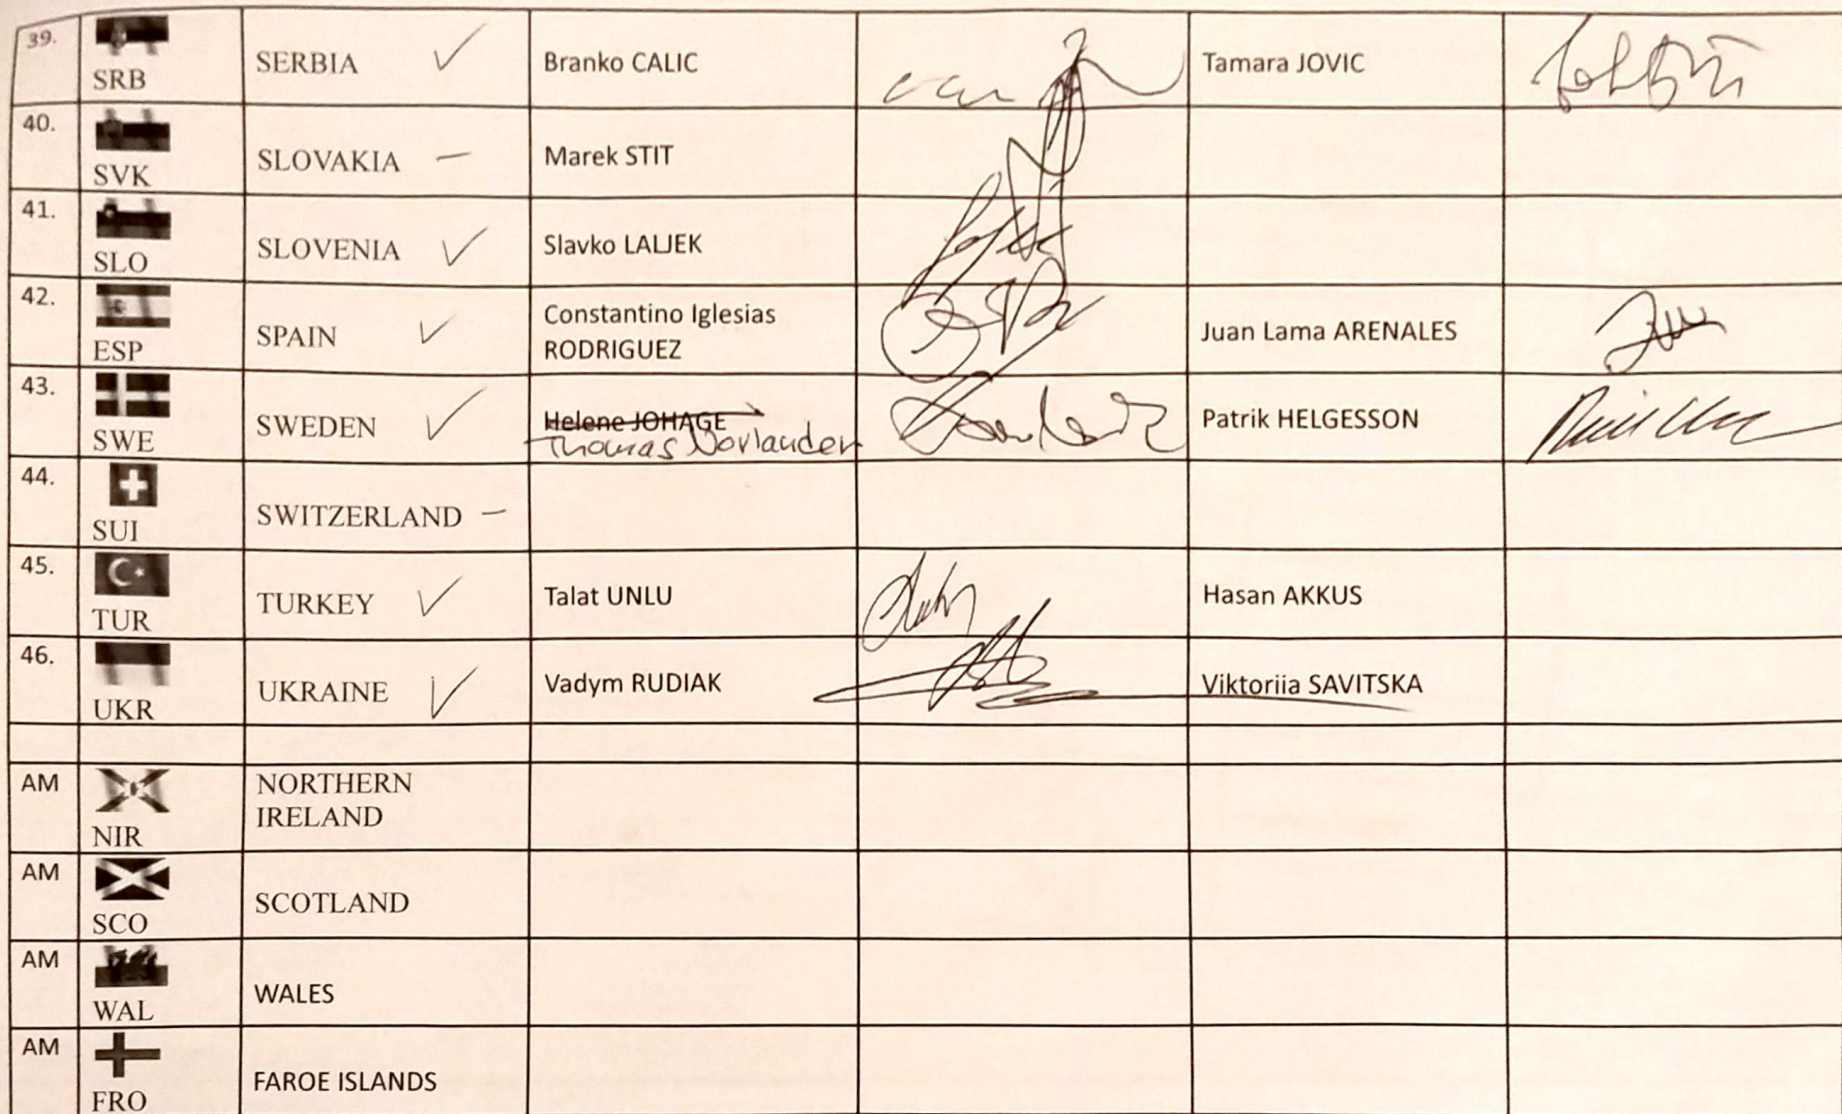 39.
SRB
SERBIA ✓
Branko CALIC
Tamara JOVIC
40.
SVK
SLOVAKIA –
Marek STIT
41.
SLO
SLOVENIA ✓
Slavko LALJEK
42.
ESP
SPAIN ✓
Constantino Iglesias
RODRIGUEZ
Juan Lama ARENALES
43.
SWE
SWEDEN ✓
Helene JOHAGE
Thomas Norlander
Patrik HELGESSON
44.
SUI
SWITZERLAND –
45.
TUR
TURKEY ✓
Talat UNLU
Hasan AKKUS
46.
UKR
UKRAINE ✓
Vadym RUDIAK
Viktoriia SAVITSKA
AM
NIR
NORTHERN
IRELAND
AM
SCO
SCOTLAND
AM
WAL
WALES
AM
FRO
FAROE ISLANDS